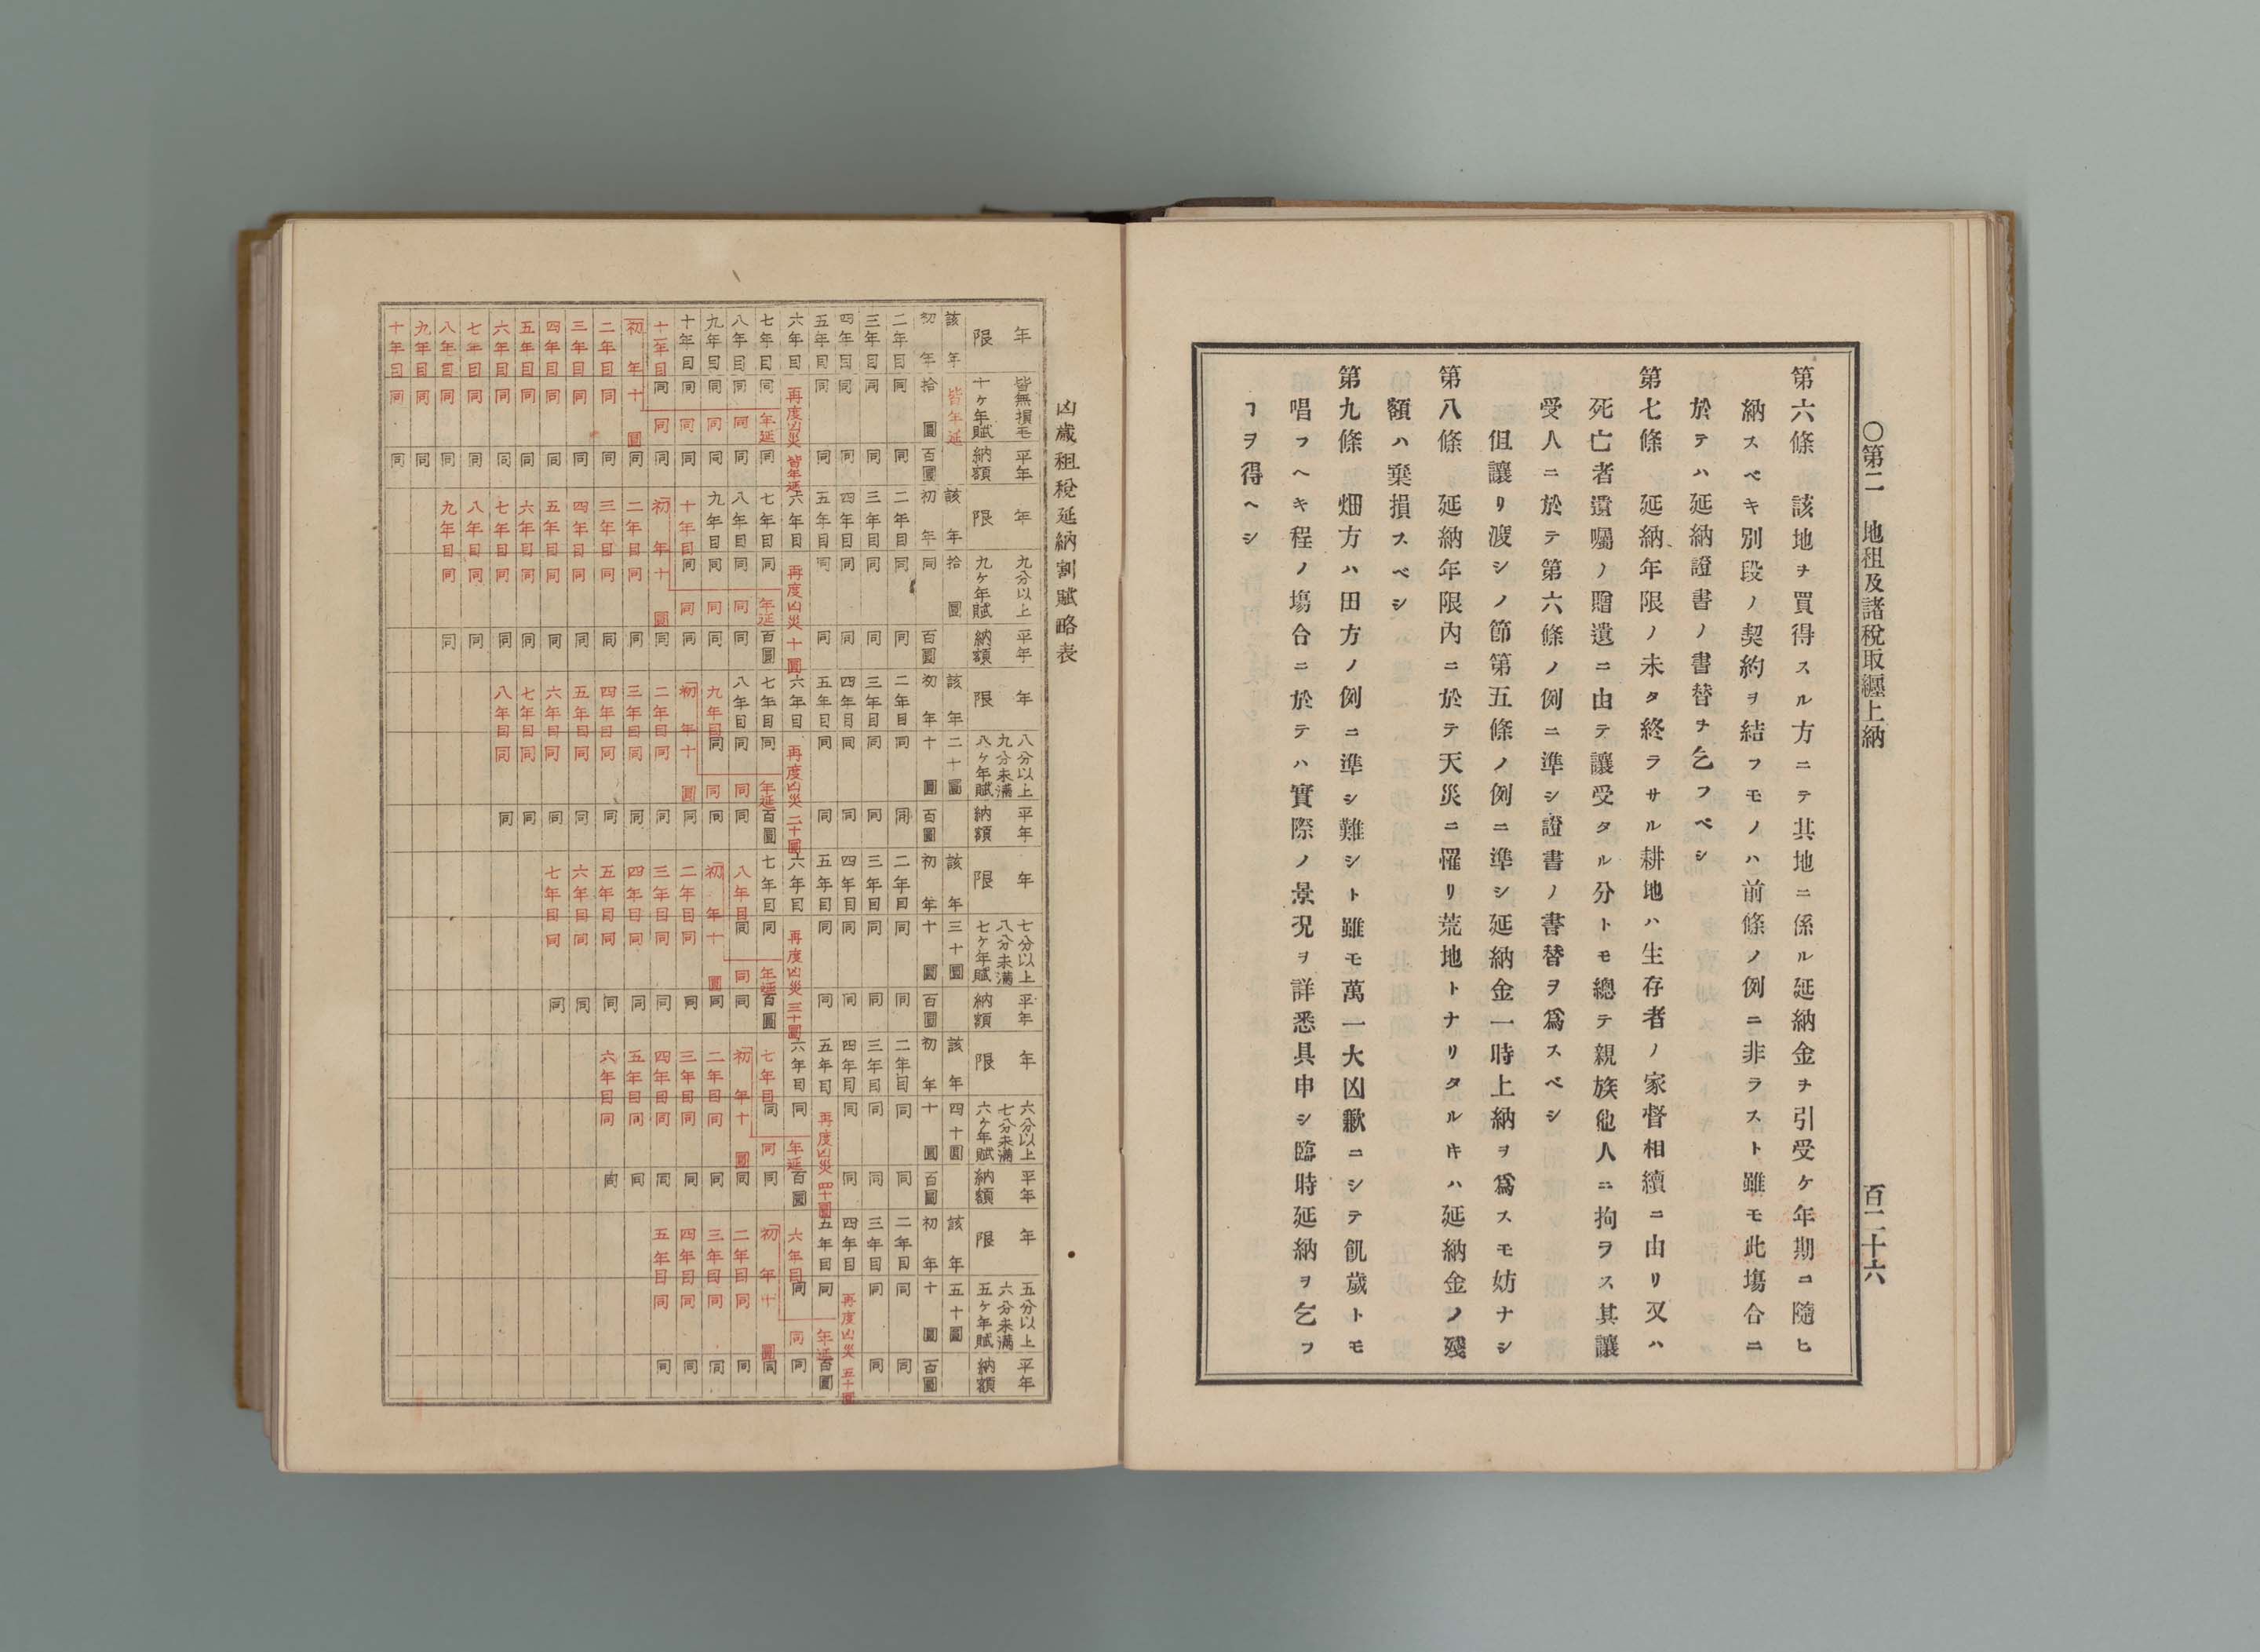 ○第二 地租及諸稅取纒上納 百二十六
第六條 該地ヲ買得スル方ニテ其地ニ係ル延納金ヲ引受ケ年期ニ隨ヒ
納スベキ別段ノ契約ヲ結フモノハ前條ノ例ニ非ラスト雖モ此塲合ニ
於テハ延納證書ノ書替ヲ乞フベシ
第七條 延納年限ノ未タ終ラサル耕地ハ生存者ノ家督相續ニ由リ又ハ
死亡者遺囑ノ贈遺ニ由テ讓受タル分トモ總テ親族他人ニ拘ヲス其讓
受人ニ於テ第六條ノ例ニ準シ證書ノ書替ヲ爲スベシ
但讓リ渡シノ節第五條ノ例ニ準シ延納金一時上納ヲ爲スモ妨ナシ
第八條 延納年限内ニ於テ天災ニ罹リ荒地トナリタルキハ延納金ノ殘
額ハ棄損スベシ
第九條 畑方ハ田方ノ例ニ準シ難シト雖モ萬一大凶歉ニシテ飢歲トモ
唱フヘキ程ノ塲合ニ於テハ實際ノ景況ヲ詳悉具申シ臨時延納ヲ乞フ
ヿヲ得ヘシ
凶歲租稅延納割賦略表
年限 皆無損毛十ヶ年賦 平年納額 年限 九分以上九ヶ年賦 平年納額 年限 八分以上九分未滿八ヶ年賦 平年納額 年限 七分以上八分未滿七ヶ年賦 平年納額 年限 六分以上七分未滿六ヶ年賦 平年納額 年限 五分以上六分未滿五ヶ年賦 平年納額
該年 皆年延 該年 拾圓 該年 二十圓 該年 三十圓 該年 四十圓 該年 五十圓
初年 拾圓 百圓 初年 同 百圓 初年 十圓 百圓 初年 十圓 百圓 初年 十圓 百圓 初年 十圓 百圓
二年目 同 同 二年目 同 同 二年目 同 同 二年目 同 同 二年目 同 同 二年目 同 同
三年目 同 同 三年目 同 同 三年目 同 同 三年目 同 同 三年目 同 同 三年目 同 同
四年目 同 同 四年目 同 同 四年目 同 同 四年目 同 同 四年目 同 同 四年目 再度凶災 五十圓
五年目 同 同 五年目 同 同 五年目 同 同 五年目 同 同 五年目 再度凶災 四十圓 五年目 同 年延 百圓
六年目 再度凶災 皆年延 六年目 再度凶災 十圓 六年目 再度凶災 二十圓 六年目 再度凶災 三十圓 六年目 同 年延 百圓 六年目 同 同 同
七年目 同 年延 同 七年目 同 年延 百圓 七年目 同 年延 百圓 七年目 同 年延 百圓 七年目 同 同 同 初年 十圓 同
八年目 同 同 同 八年目 同 同 同 八年目 同 同 同 八年目 同 同 同 初年 十圓 同 二年目 同 同
九年目 同 同 同 九年目 同 同 同 九年目 同 同 同 初年 十圓 同 二年目 同 同 三年目 同 同
十年目 同 同 同 十年目 同 同 同 初年 十圓 同 二年目 同 同 三年目 同 同 四年目 同 同
十一年目 同 同 同 初年 十圓 同 二年目 同 同 三年目 同 同 四年目 同 同 五年目 同 同
初年 十圓 同 二年目 同 同 三年目 同 同 四年目 同 同 五年目 同 同
二年目 同 同 三年目 同 同 四年目 同 同 五年目 同 同 六年目 同 同
三年目 同 同 四年目 同 同 五年目 同 同 六年目 同 同
四年目 同 同 五年目 同 同 六年目 同 同 七年目 同 同
五年目 同 同 六年目 同 同 七年目 同 同
六年目 同 同 七年目 同 同 八年目 同 同
七年目 同 同 八年目 同 同
八年目 同 同 九年目 同 同
九年目 同 同
十年目 同 同